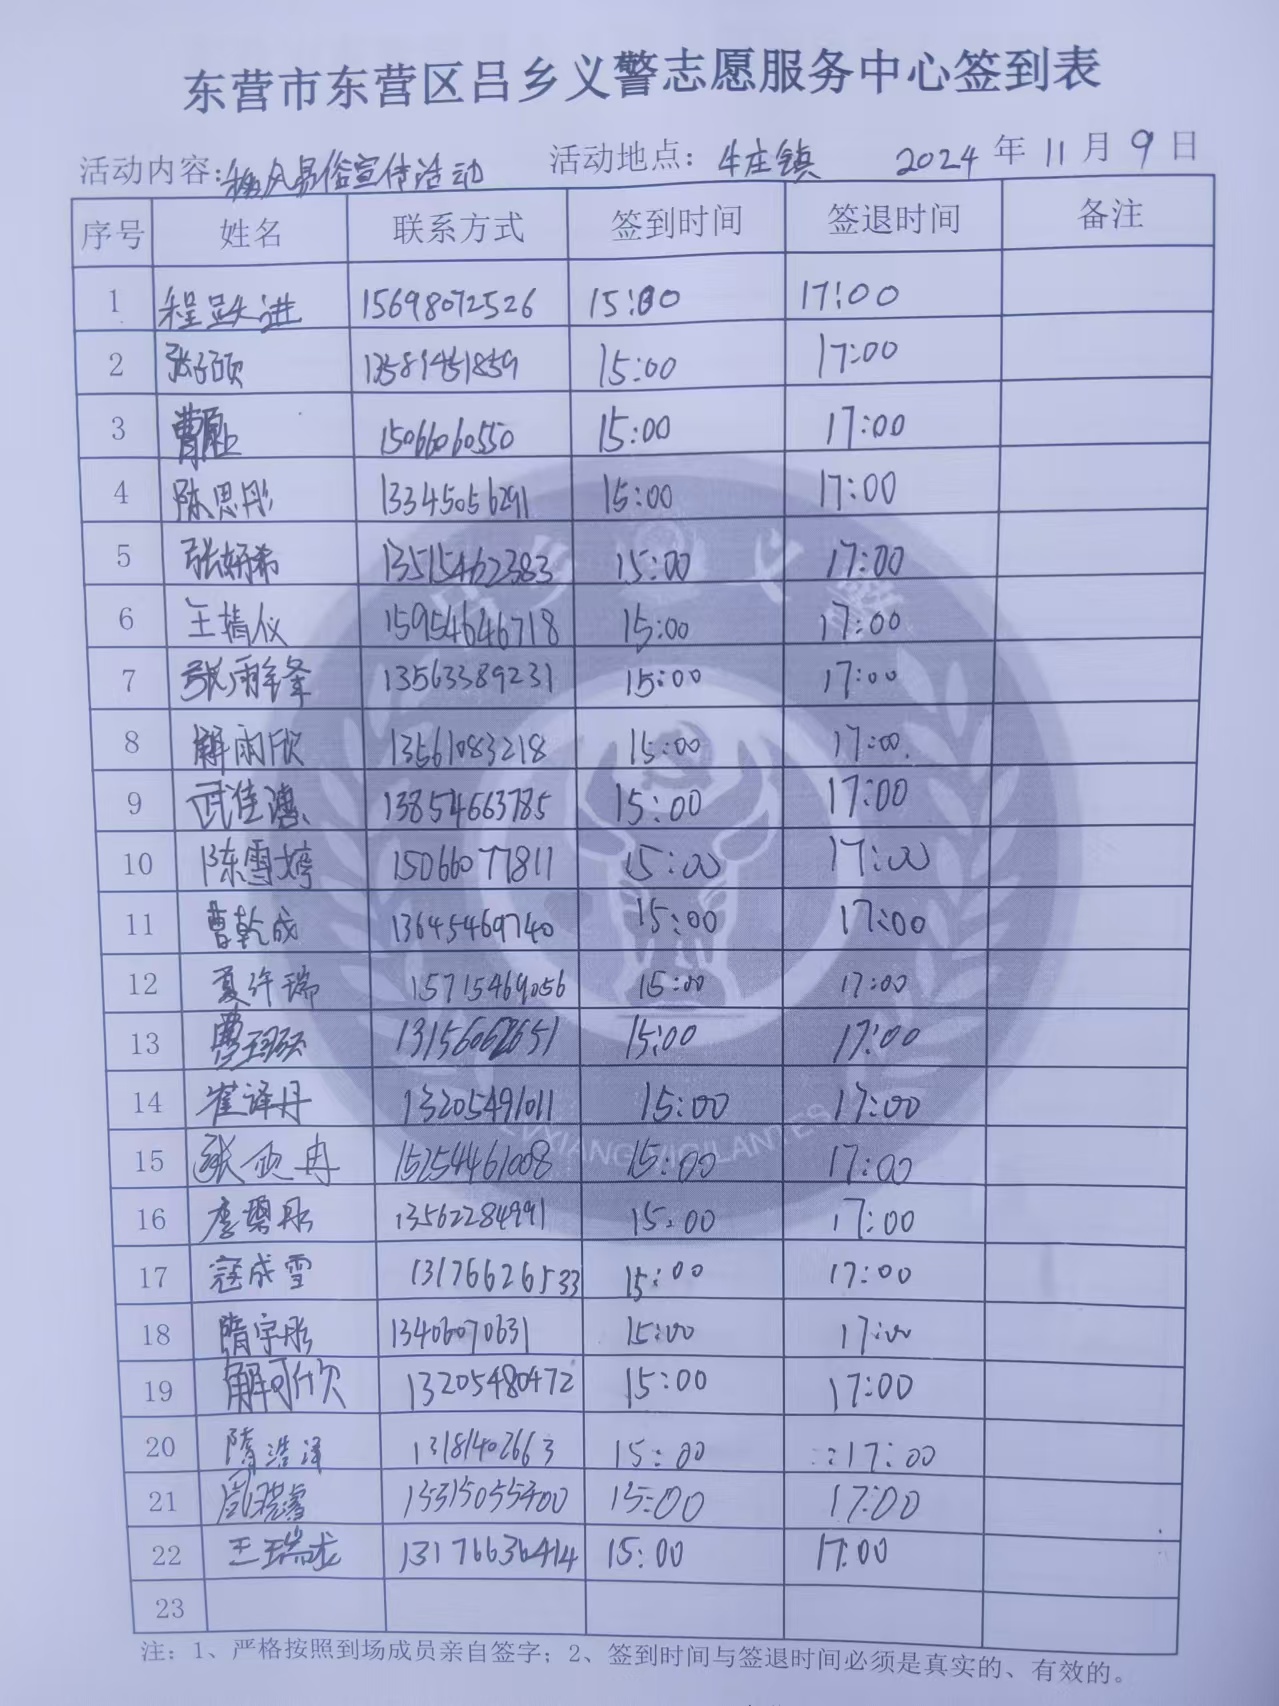 东营市东营区吕乡义警志愿服务中心签到表
活动内容:移风易俗宣传活动 活动地点:牛庄镇 2024年11月9日
序号 姓名 联系方式 签到时间 签退时间 备注
1 程跃进 15698072526 15:00 17:00
2 张子硕 13589451859 15:00 17:00
3 曹 15066060550 15:00 17:00
4 陈思彤 13345056291 15:00 17:00
5 张妍希 13515462383 15:00 17:00
6 王婧仪 15954646718 15:00 17:00
7 张雨锋 13563389231 15:00 17:00
8 解雨欣 13561083218 15:00 17:00
9 武佳 13854663785 15:00 17:00
10 陈雪婷 15066077811 15:00 17:00
11 曹乾成 13645469740 15:00 17:00
12 夏许瑞 15715469056 15:00 17:00
13 曹 15:00 17:00
14 崔译丹 13205491011 15:00 17:00
15 张冉 15254461008 15:00 17:00
16 李 13562284991 15:00 17:00
17 寇成雪 13176626533 15:00 17:00
18 隋宇彤 13406070631 15:00 17:00
19 解可欣 13205480472 15:00 17:00
20 隋浩泽 13181402663 15:00 17:00
21 15315055400 15:00 17:00
22 王瑞龙 13176636414 15:00 17:00
23
注：1、严格按照到场成员亲自签字；2、签到时间与签退时间必须是真实的、有效的。
吕乡义警
LVXIANG VIGILANTES